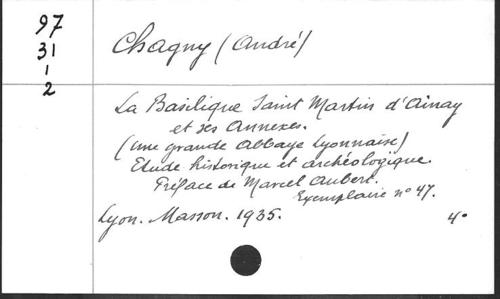 97
31
1
2
Chagny (André)
La Basilique Saint Martin d'Ainay
et ses Annexes.
(une grande abbaye lyonnaise)
Etude historique et archéologique.
Préface de Marcel Aubert.
Exemplaire n° 47.
Lyon. Masson. 1935.
4°